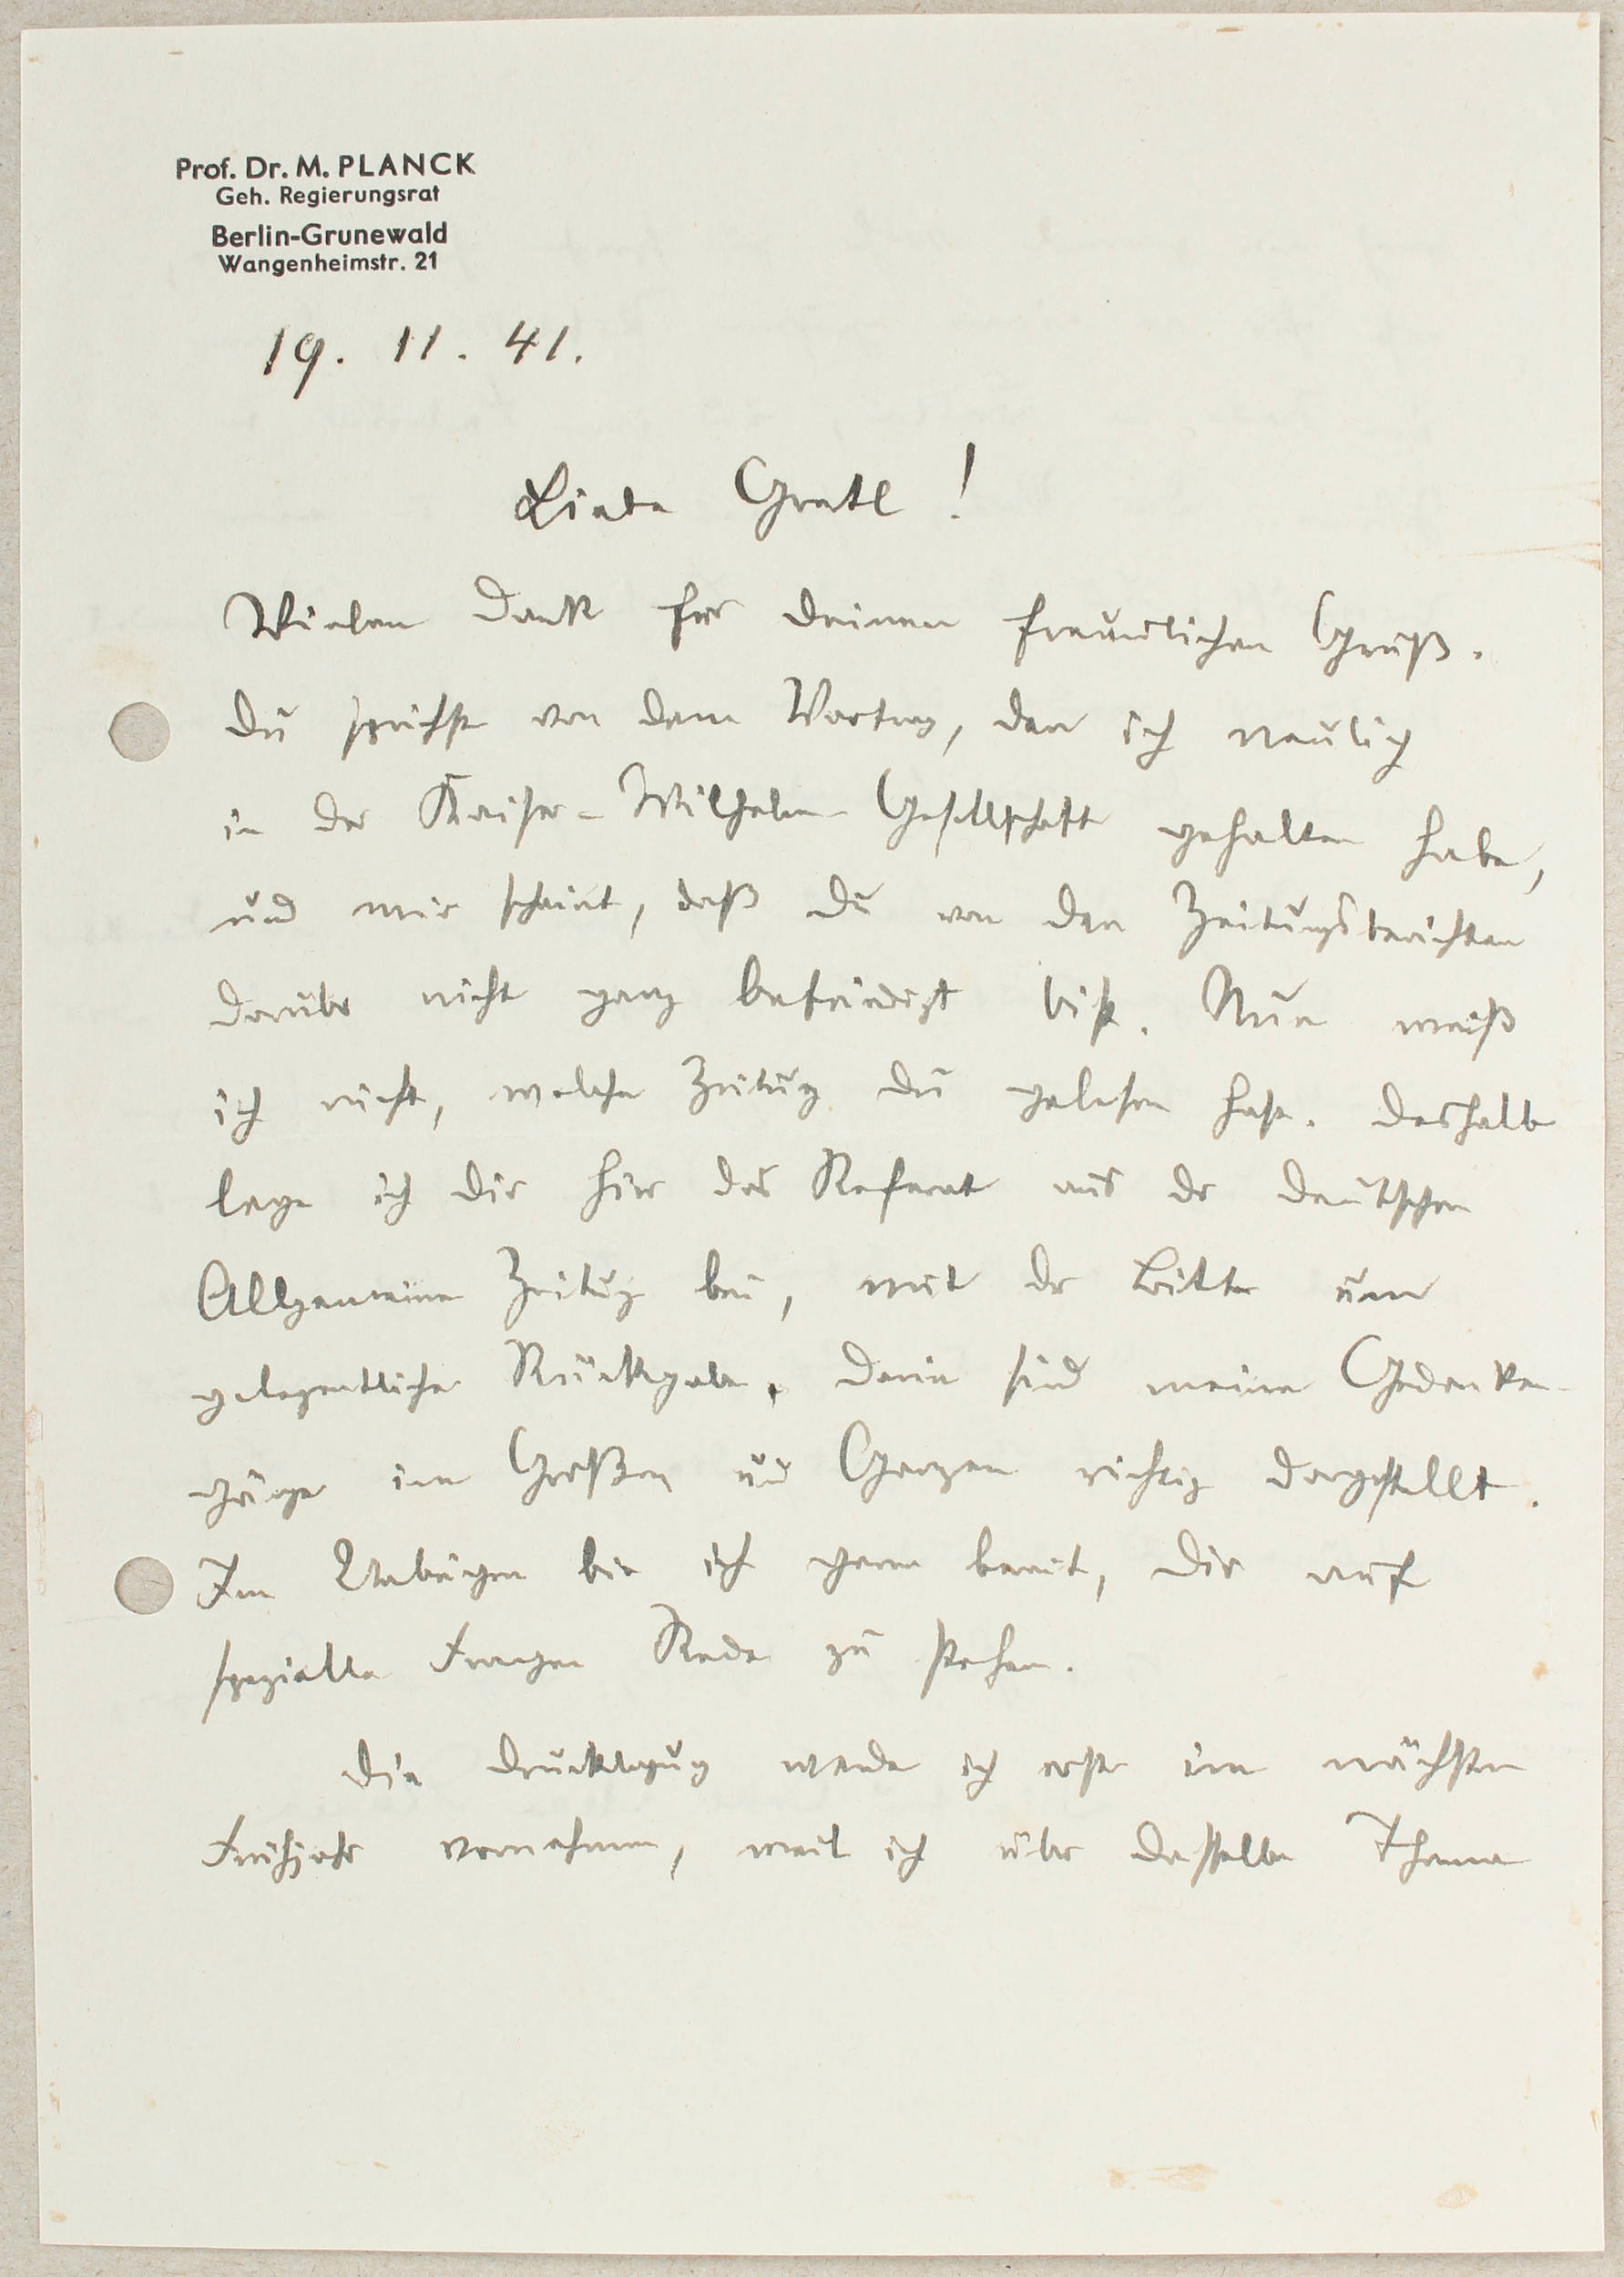 Prof. Dr. M. PLANCK
Geh. Regierungsrat
Berlin-Grunewald
Wangenheimstr. 21
19. 11. 41.
Liebe Gretl!
Vielen Dank für Deinen freundlichen Gruß.
Du sprichst von dem Vortrag, den ich neulich
in der Kaiser-Wilhelm-Gesellschaft gehalten habe,
und mir scheint, daß Du von den Zeitungsberichten
darüber nicht ganz befriedigt bist. Nun weiß
ich nicht, welche Zeitung Du gelesen hast. Deshalb
lege ich Dir hier das Referat aus der Deutschen
Allgemeinen Zeitung bei, mit der Bitte um
gelegentliche Rückgabe. Darin sind meine Gedanken-
gänge im Großen und Ganzen richtig dargestellt.
Im Uebrigen bin ich gern bereit, Dir auf
spezielle Fragen Rede zu stehen.
Die Drucklegung werde ich erst im nächsten
Frühjahr vornehmen, weil ich über dasselbe Thema